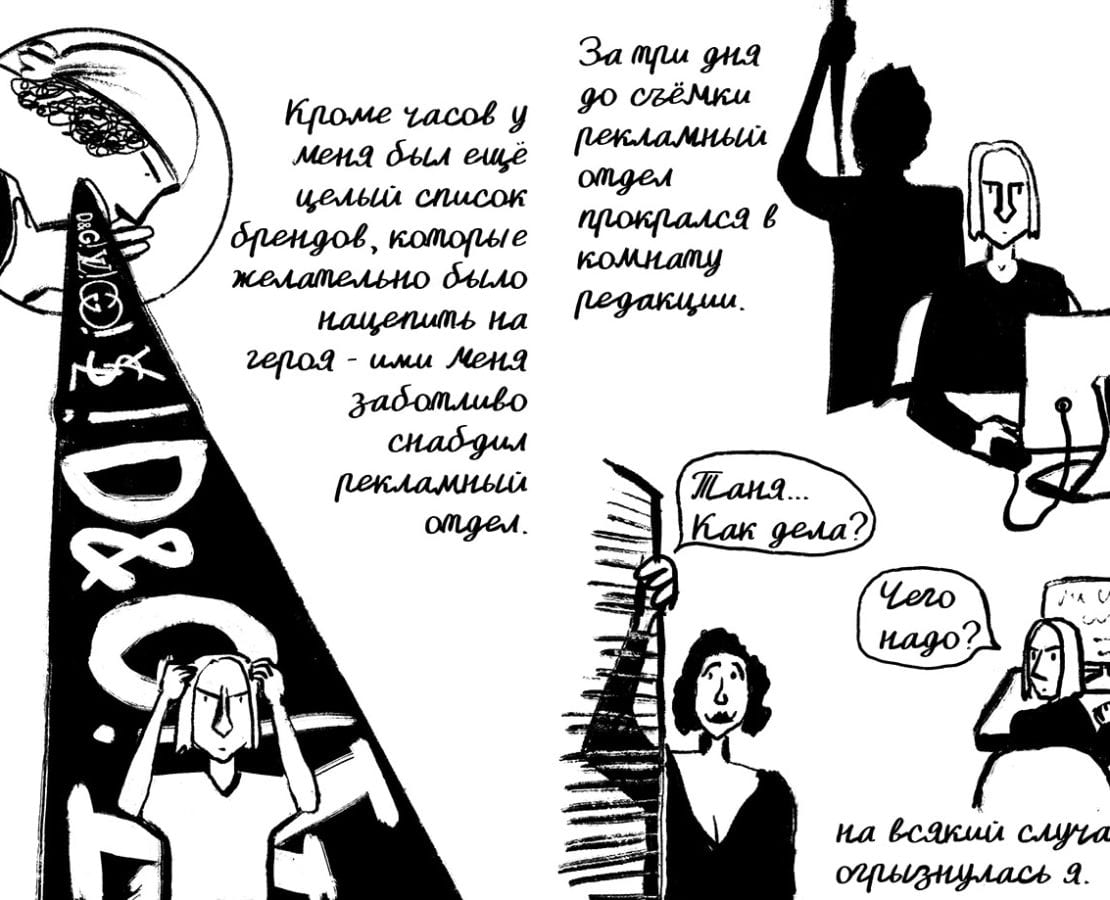 Кроме часов у
меня был ещё
целый список
брендов, которые
желательно было
нацепить на
героя - ими меня
заботливо
снабдил
рекламный
отдел.
D&G!
D&
G.
За три дня
до съёмки
рекламный
отдел
прокрался в
комнату
редакции.
Таня...
Как дела?
Чего
надо?
на всякий случа
огрызнулась я.